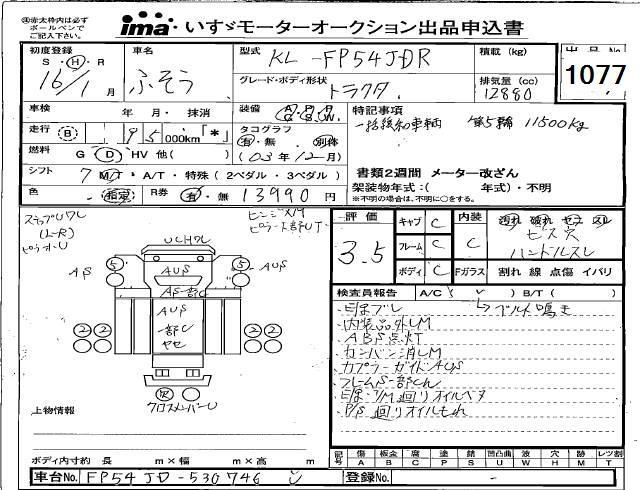 ※赤太枠内は必ずボールペンでご記入下さい。
ima いすゞモーターオークション出品申込書
初度登録 S・H・R 16/1月
車名 ふそう
型式 KL-FP54JDR
積載 (kg)
出品No.
1077
グレード・ボディ形状 トラクタ
排気量 (cc) 12880
車検 年・月・抹消
装備 A/C P/S P/W
特記事項
走行 B 95 000km「*」
タコグラフ 有・無 別体
一括緩和車輌 第5輪 11500kg
燃料 G D HV 他( )
(03年12月)
シフト 7 MT・A/T・特殊(2ペダル・3ペダル)
書類2週間 メーター改ざん
色 指定 R券 有・無 13990円
架装物年式:( 年式)・不明
※不明の場合は、不明に○をする。
ステップUワレ
(L-R)
ピラーU
UCHワレ
AS
5
AUS
5
AUS
AS一部C
AUS
一部C
ヤセ
2 2
2 2
クロスメンバーU
評価 3.5
キャブ C
内装 C
汚れ 破れ セコ スレ
フレーム C
ビス穴
ハンドルスレ
ボディ C
Fガラス
割れ 線 点傷 イバリ
検査員報告 A/C( ✓ ) B/T( )
→ベルト鳴き
・目玉ブレ
・内装品外しM
・ABS点灯
・カンバン消しM
・カプラーガイドAUS
・フレームS一部Cれ
・E/g・T/M廻りオイルベタ
・P/S廻りオイルもれ
上物情報
記号 傷A 板金B 腐C 塗P 錆S 凹凸曲U 波W 穴H 跡M レンズ割T
ボディ内寸約 長 m×幅 m×高 m
車台No. FP54JD-530746
登録No. -